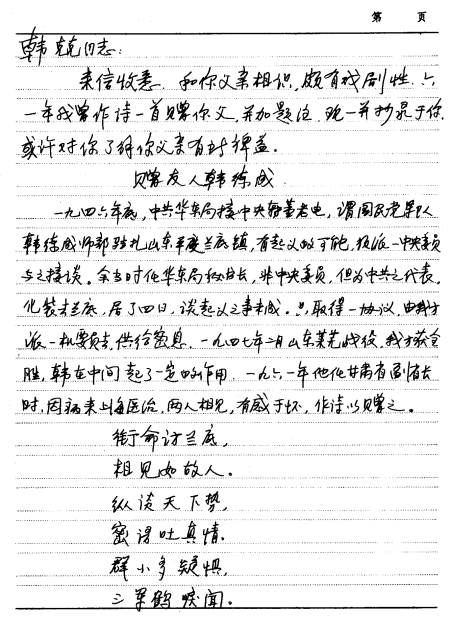 第 页
韩兢同志：
来信收悉。和你父亲相识，颇有戏剧性。六
一年我曾作诗一首赠你父，并加题注，现一并抄录于你，
或许对你了解你父亲有所裨益。
赠友人韩练成
一九四六年底，中共华东局接中央董老电，谓国民党军人
韩练成师部驻扎山东平度兰底镇，有起义的可能，须派一中央委员
与之接谈。余当时任华东局秘书长，非中央委员，但为中共之代表，
化装去兰底，居了四日，谈起义之事未成。只取得一协议，由我方
派一机要员去，供给密息。一九四七年二月山东莱芜战役，我方获全
胜，韩在中间起了一定的作用。一九六一年他任甘肃省副省长
时，因病来上海医治，两人相见，有感于怀，作诗以赠之。
衔命访兰底，
相见如故人。
纵谈天下势，
密谈吐真情。
群小多疑惧，
三军鹤唳闻。